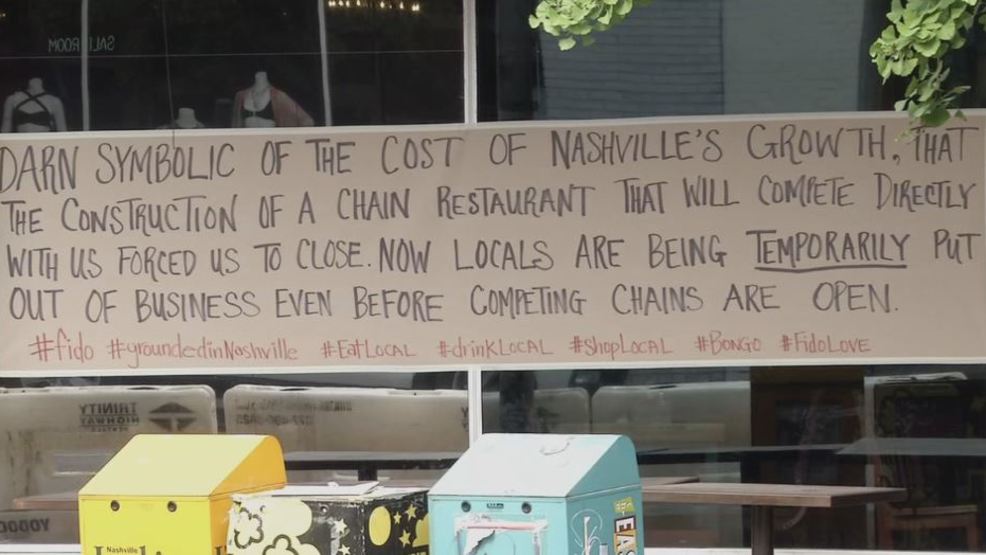 SALE ROOM
DARN SYMBOLIC OF THE COST OF NASHVILLE'S GROWTH, THAT
THE CONSTRUCTION OF A CHAIN RESTAURANT THAT WILL COMPETE DIRECTLY
WITH US FORCED US TO CLOSE. NOW LOCALS ARE BEING TEMPORARILY PUT
OUT OF BUSINESS EVEN BEFORE COMPETING CHAINS ARE OPEN.
#fido #groundedinNashville #EatLOCAL #drinkLOCAL #ShopLOCAL #BONGO #FidoLOVE
TRINITY
HIGHWAY
RENTALS
Nashville